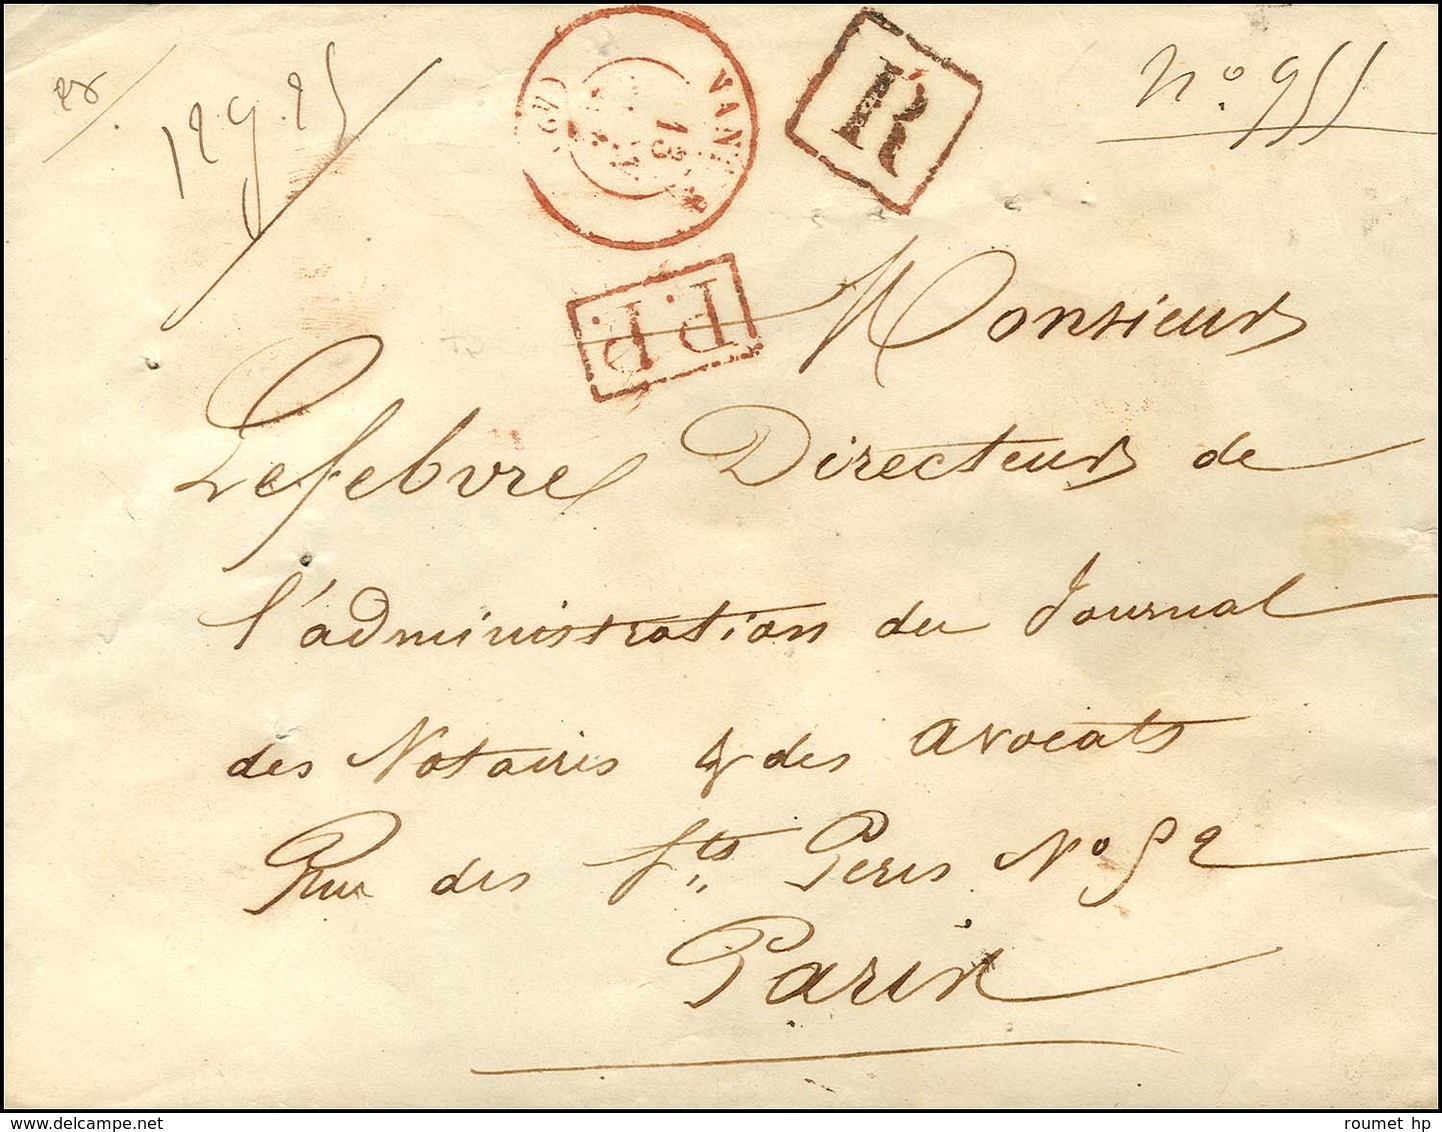 n° 955
R
P.P.
13
Monsieur
Lefebvre Directeur de
l'administration du Journal
des Notaires & des avocats
Rue des Sts Peres N° 52
Paris
roumet hp